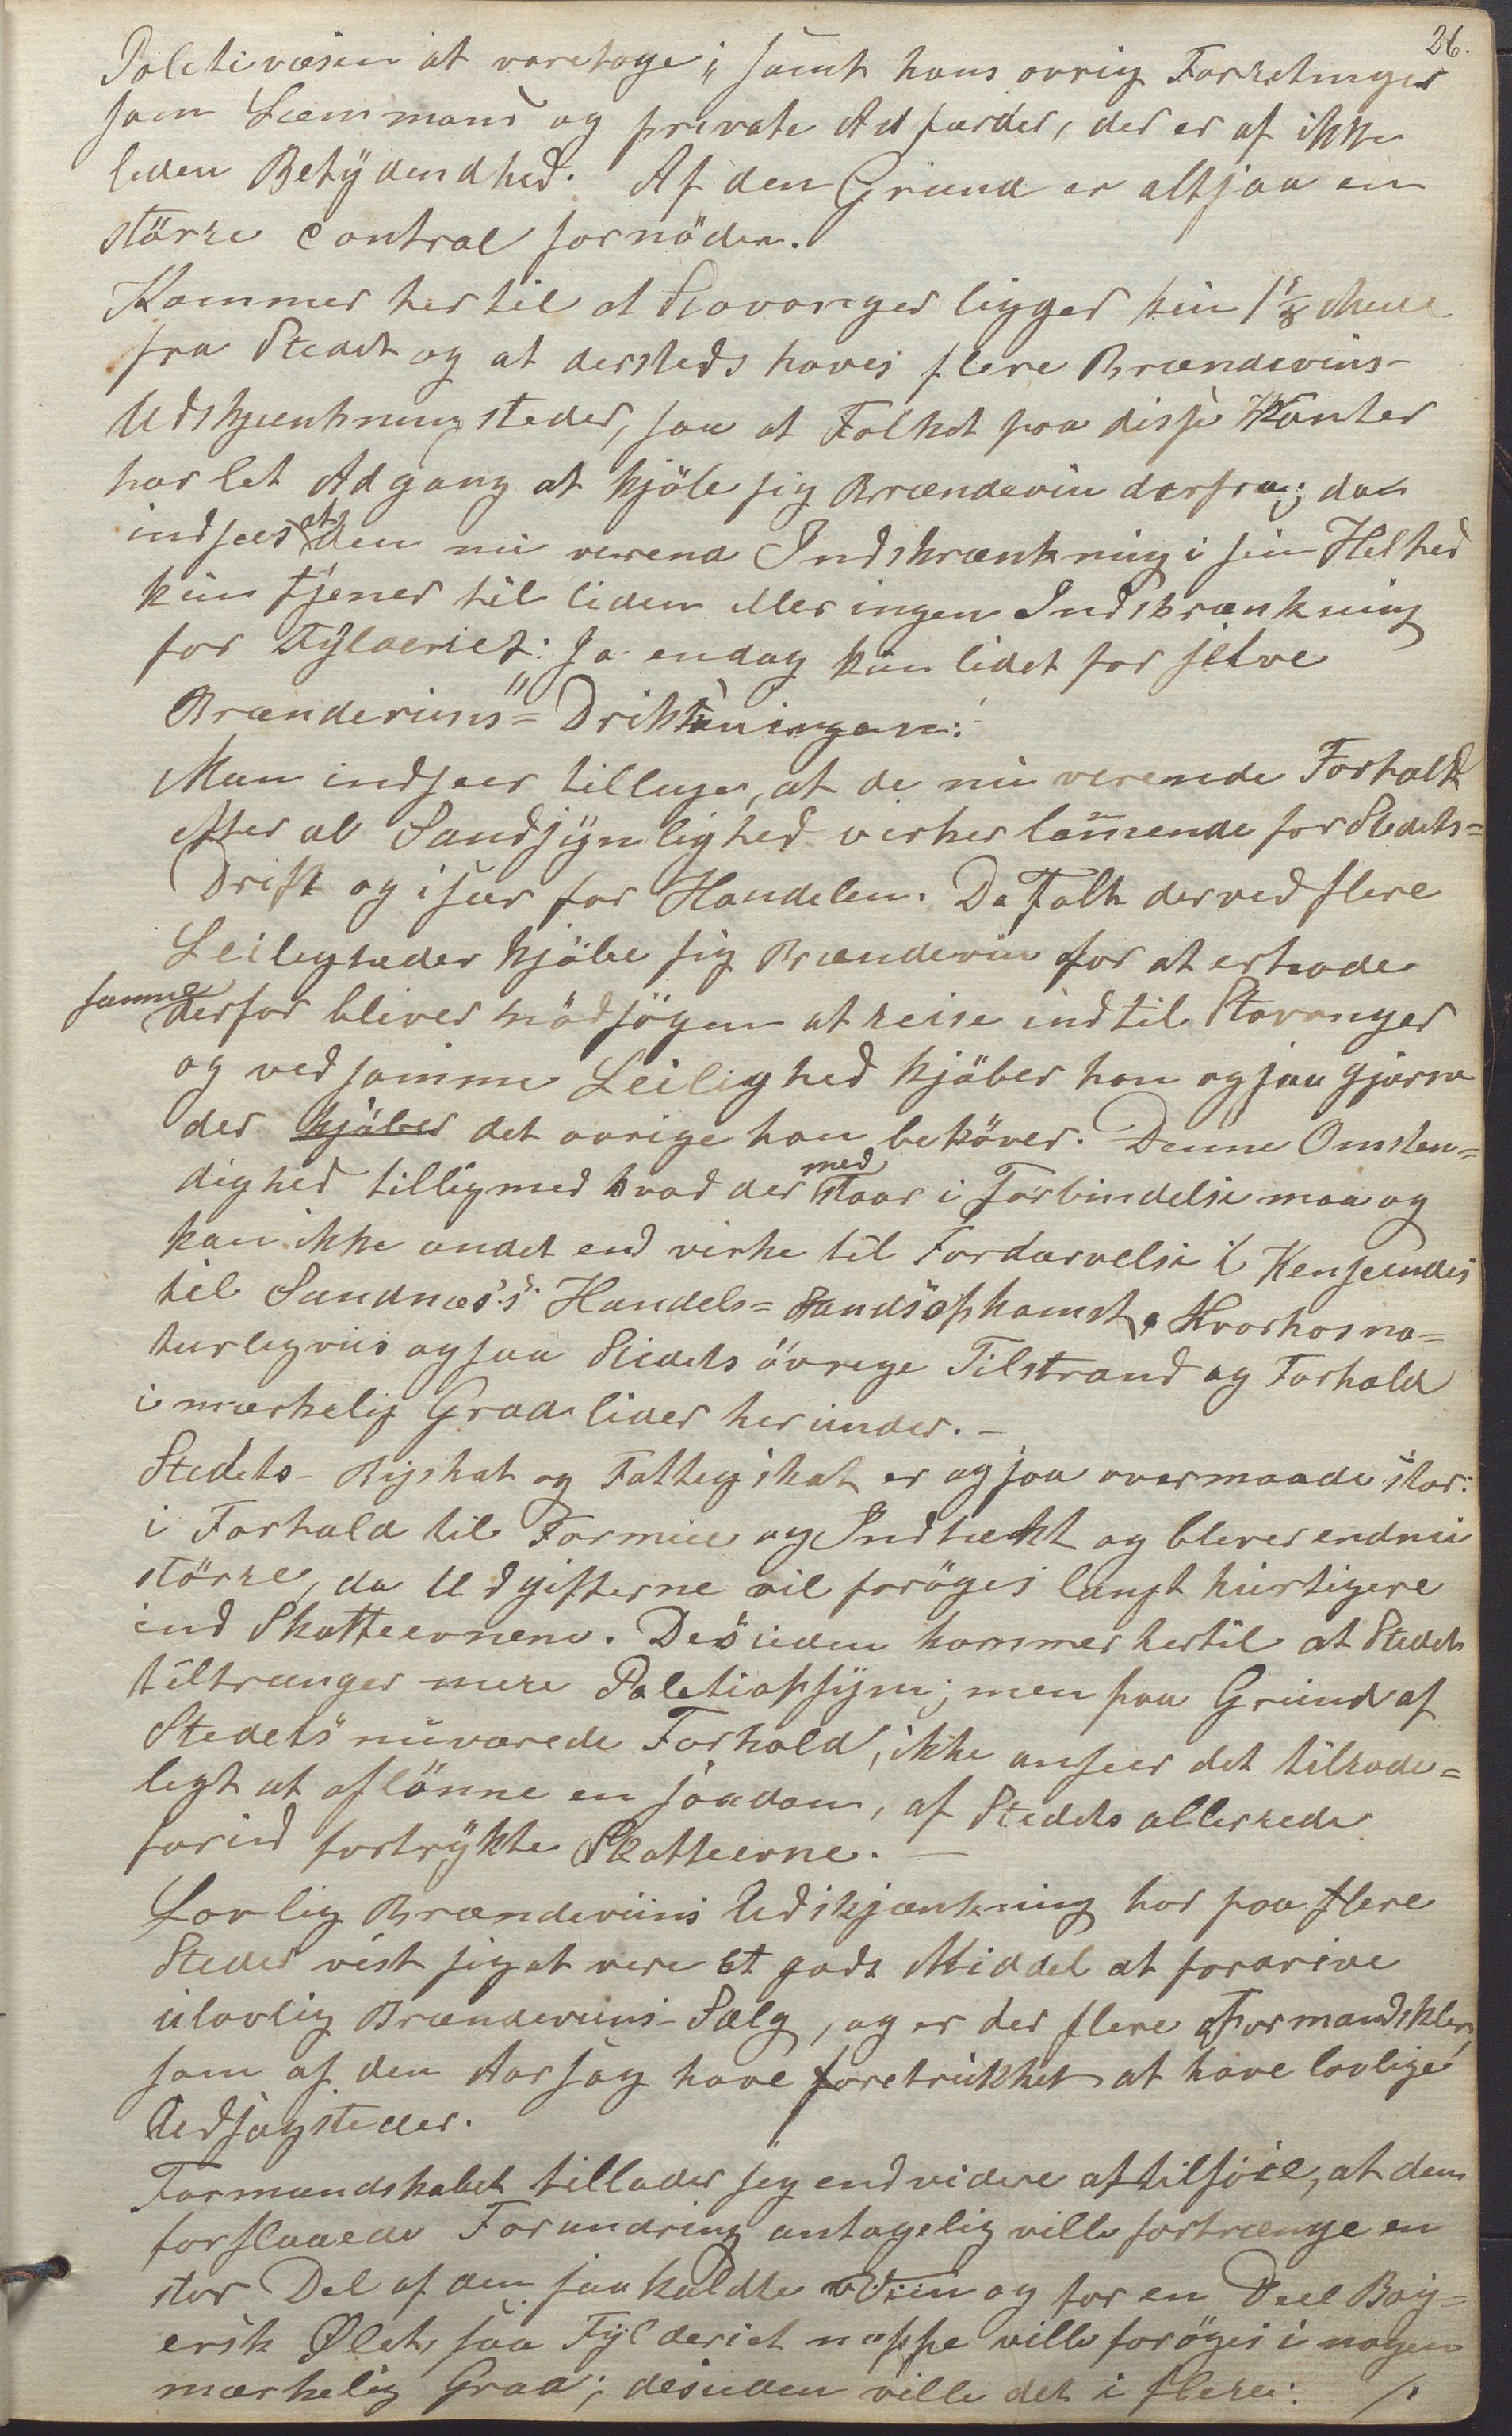 26.
Poletivæsen at varetage; samt hans øvrig Forretninger
som Lænsmand og private Adfærder, der er af ikke
leden Betÿdendhed. Af den Grund er altsaa en
större Control fornöden.
Kommer hertil at Stavanger ligger kun 1 1/8 Miil
fra Stedet og at dersteds haves flere Brændevins-
Udskjænkningsteder, saa at Folket paa disse Kanter
har let Adgang at kjöbe sig Brændeviin derfra; da
indsees at den nu verend Indskrænkning i sin Helhed
kun tjener til liden eller ingen Indskrænkning
for Fÿlderiet: Ja endog kun lidet for selve
Brændeviins= Drikningen:
Man indseer tillige, at de nu verende Forhold
efter al Sandsÿnlighed virker lam̄ende for Stedets=
Drift og især for Handelen. Da Folk derved flere
Leilegheder kjöbe sig Brændeviin for at erhode
samme derfor bliver nödsögen at reise ind til Stavanger
og ved samme Leilighed kjöber han ogsaa gjærne
der kjöber det øvrige han behöver. Denne Omsten=
dighed tilligmed hvad der med staar i Forbindelse maa og
kan ikke andet end virke til Fordærvelse i Henseendes
til Sandnæs's Handels= Standsopkomst, Hvorhos na=
turligviis ogsaa Stedets övrige Tilstrand og Forhold
i mærkelig Grad lider herunder. –
Stedets- Byskat og Fattigskat er ogsaa overmaade stor:
i Forhold til Formue og Indtækt og bliver endnu
större, da Udgifterne vil foröges langt hurtigere
end Skatteevnene. Desuden kommer hertil at Stedet
tiltrænger mere Poletiopsÿn; men paa Grund af
Stedets nuværede Forhold, ikke anseer det tilraade=
legt at aflönne en saadan, af Stedets allerrede
forud fortrÿkte Skatteevne. –
Lovlig Brændeviins Udskjænkning har paa flere
Steder vist sig at vere et godt Middel at fordrive
ulovlig Brændeviins-Salg, og er der flere Formandskber,
som af den Aarsag have foretrukket at have lovlige
Udsagsteder.
Formandskabet tillader sig endvidere at tilföie, at den
forslaaede Forandring antagelig ville fortrænge en
stor Del af den saakaldte Viin og for en Deel Baÿ=
ersk Ølet, saa Fÿlderiet neppe ville foröges i nogen
mærkelig Grad; desuden ville det i flere: /.